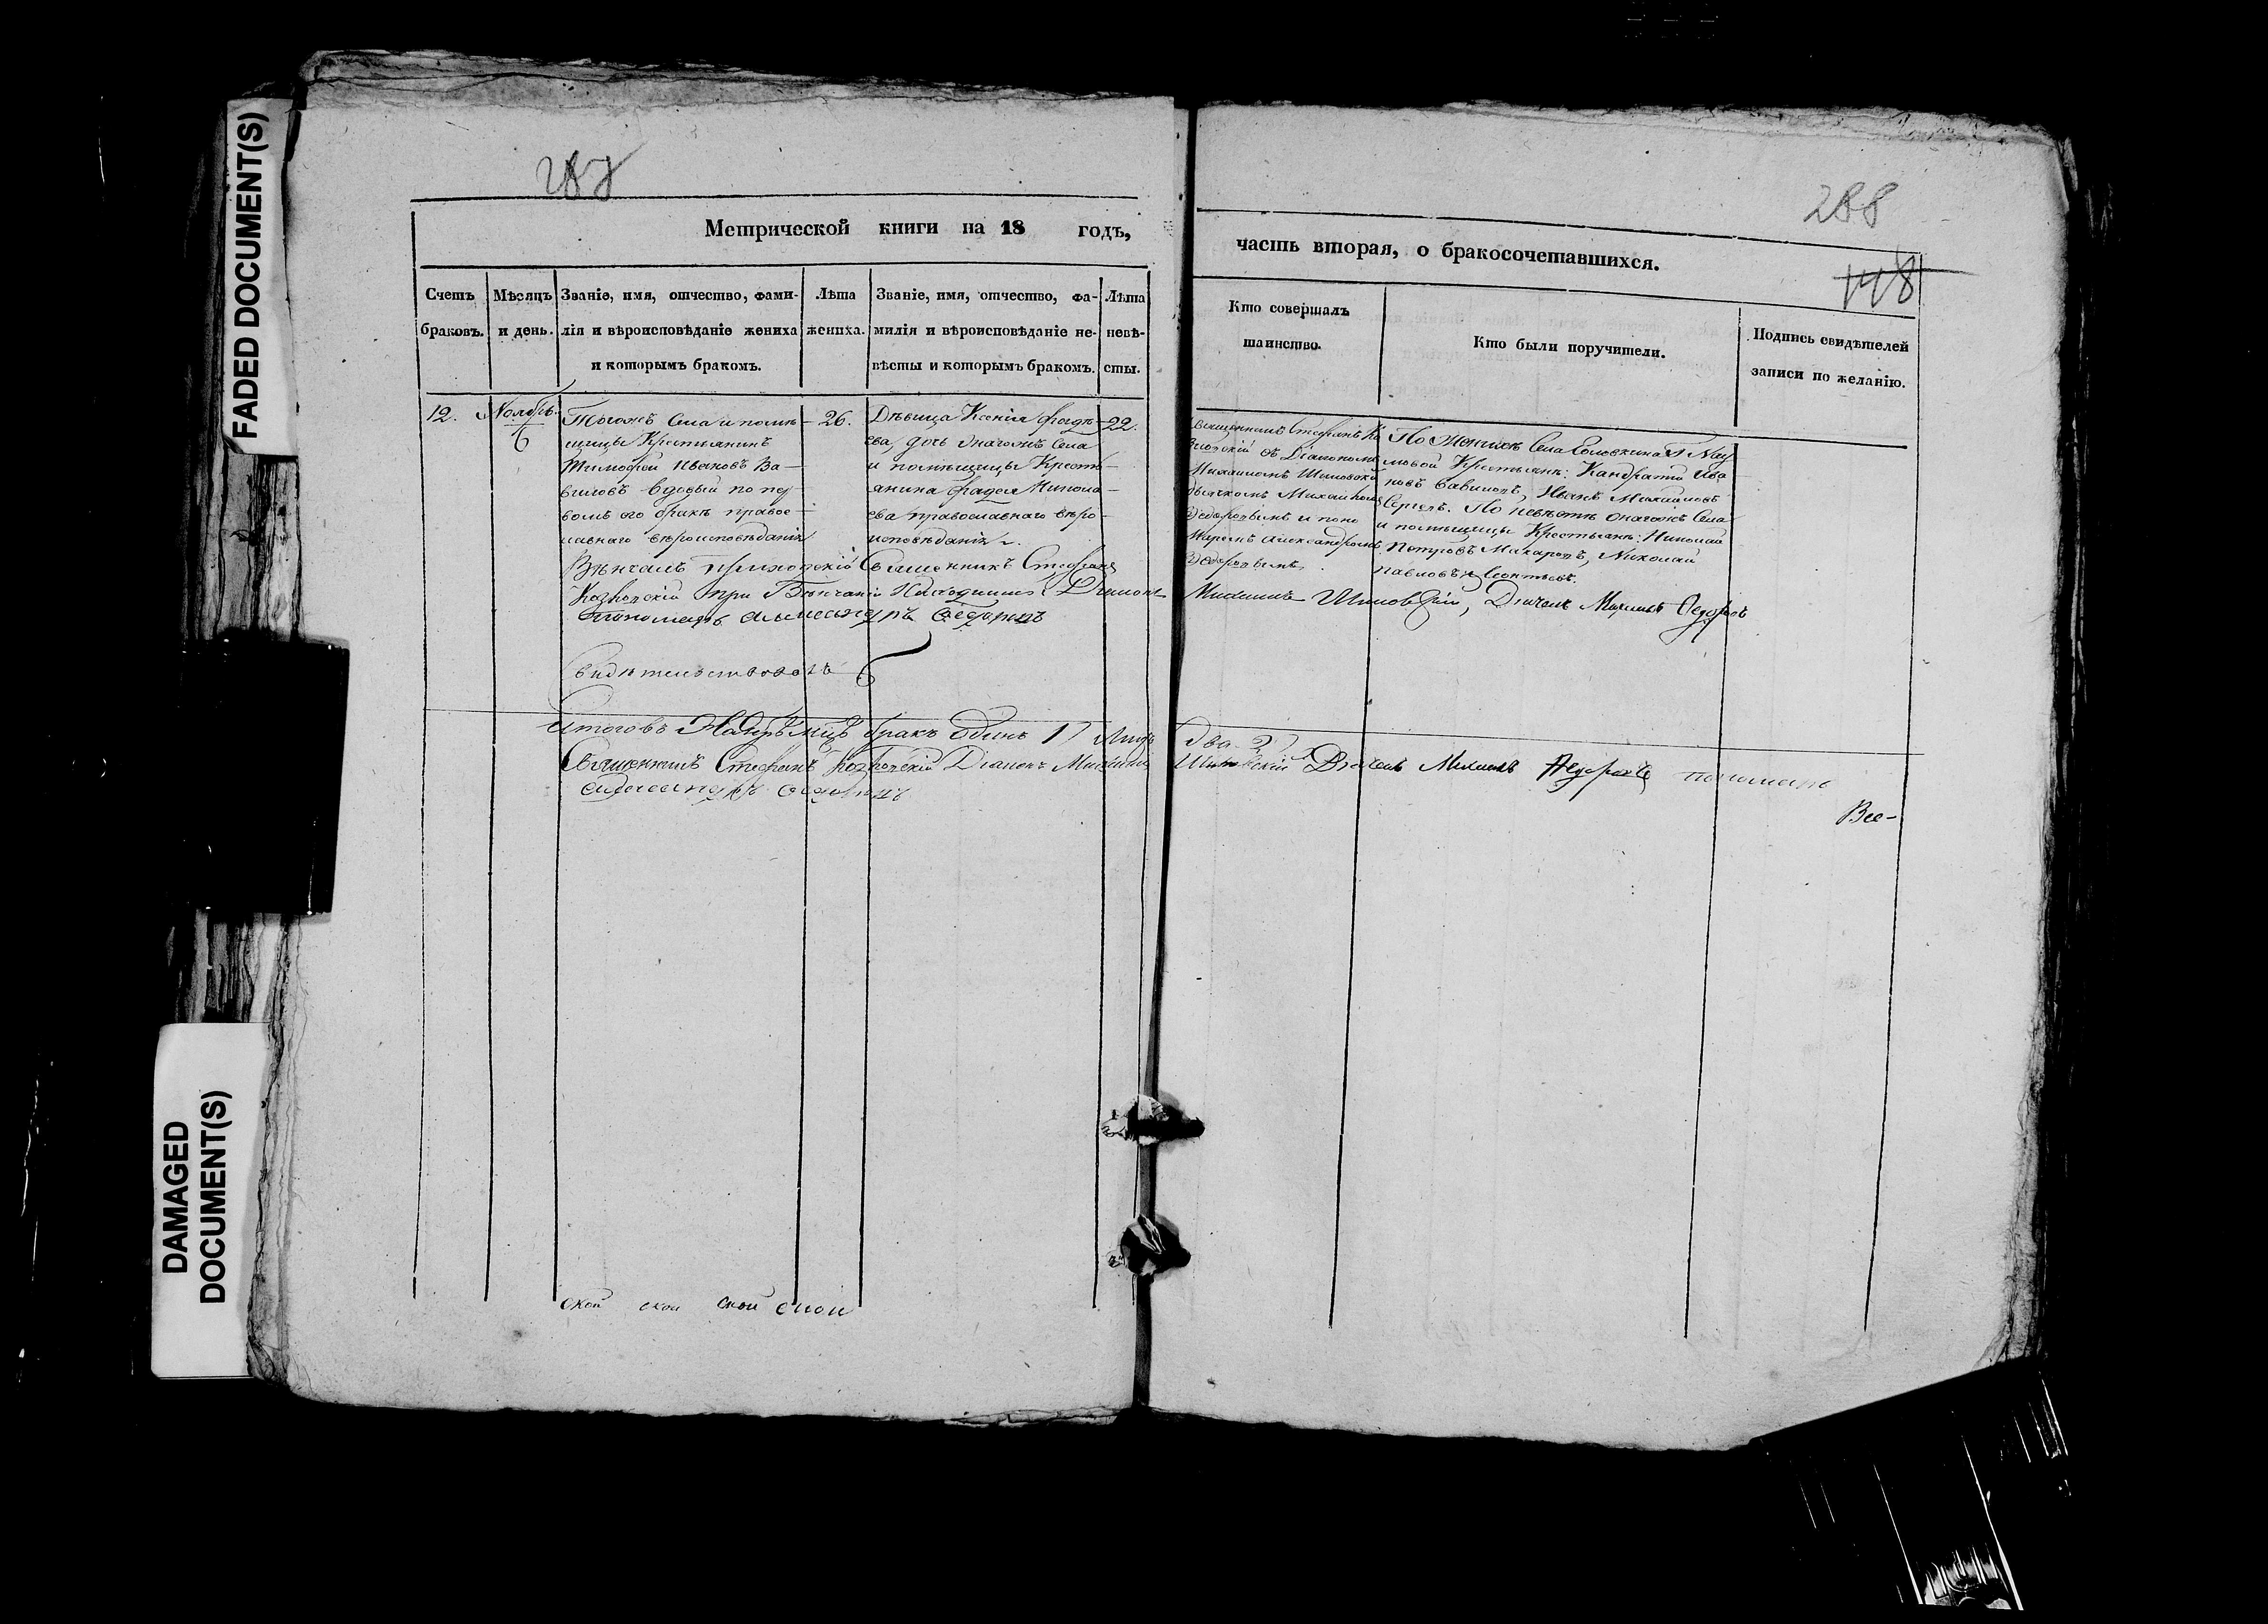 FADED DOCUMENT(S)
DAMAGED
DOCUMENT(S)
287
288
148
Метрической книги на 18 годъ,
часть вторая, о бракосочетавшихся.
Счетъ
браковъ.
Мѣсяцъ
и день.
Званіе, имя, отчество, фами-
лія и вѣроисповѣданіе жениха
и которымъ бракомъ.
Лѣта
жениха.
Званіе, имя, отчество, фа-
милія и вѣроисповѣданіе не-
вѣсты и которымъ бракомъ.
Лѣта
невѣ-
сты.
Кто совершалъ
таинство.
Кто были поручители.
Подпись свидѣтелей
записи по желанію.
12.
Ноябрь
6
Тогожъ Села и помѣ-
щицы Крестьянинъ
Тимофей Ивановъ Ва-
виловъ вдовый по пер
вомъ его бракѣ правос-
лавнаго вѣроисповѣданія
26.
Дѣвица Ксенія Фадѣ-
ева, дочь онагожъ Села
и помѣщицы Кресть-
янина Фадея Никола-
ева православнаго вѣро-
исповѣданія.
22.
Священникъ Стефанъ Ко
съ Діакономъ
Михаиломъ
дьячкомъ Михаиломъ
Ѳедоровымъ и поно
маремъ Александромъ
Ѳедоровымъ
По Женихѣ Села Соловкина Г. Нау
мовой Крестьяне: Кандратій Ива
новъ Вавиловъ, Иванъ Михайловъ
Сергеевъ. По невѣстѣ онагожъ Села
и помѣщицы Крестьяне: Николай
Петровъ Макаровъ, Николай
Павловъ Леонтьевъ.
Вѣнчалъ приходскій Священникъ Стефанъ
при Вѣнчаніи Находились Діаконъ
Михаилъ Дьячекъ Михаилъ Ѳедоровъ
Пономарь Александръ Ѳедоровъ
Свидѣтельствовалъ
Итого въ Ноябрѣ мцѣ бракъ Одинъ 1 Лицъ два 2
Священникъ Стефанъ Діаконъ Михаилъ Дьячекъ Михаилъ Ѳедоровъ пономарь
Александръ Ѳедоровъ
Все-
ской ской ской ской